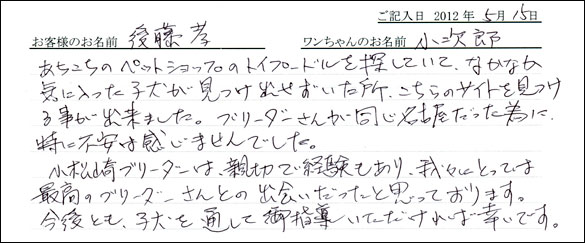 ご記入日 2012年 5月 15日
お客様のお名前 後藤 孝 ワンちゃんのお名前 小次郎
あちこちのペットショップのトイプードルを探していて、なかなか
気に入った子犬が見つけ出せずいた所、こちらのサイトを見つけ
る事が出来ました。ブリーダーさんが同じ名古屋だった為に、
特に不安は感じませんでした。
小松崎ブリーダーは、親切で経験もあり、我々にとっては
最高のブリーダーさんとの出会いだったと思っております。
今後とも、子犬を通して御指導いただければ幸いです。